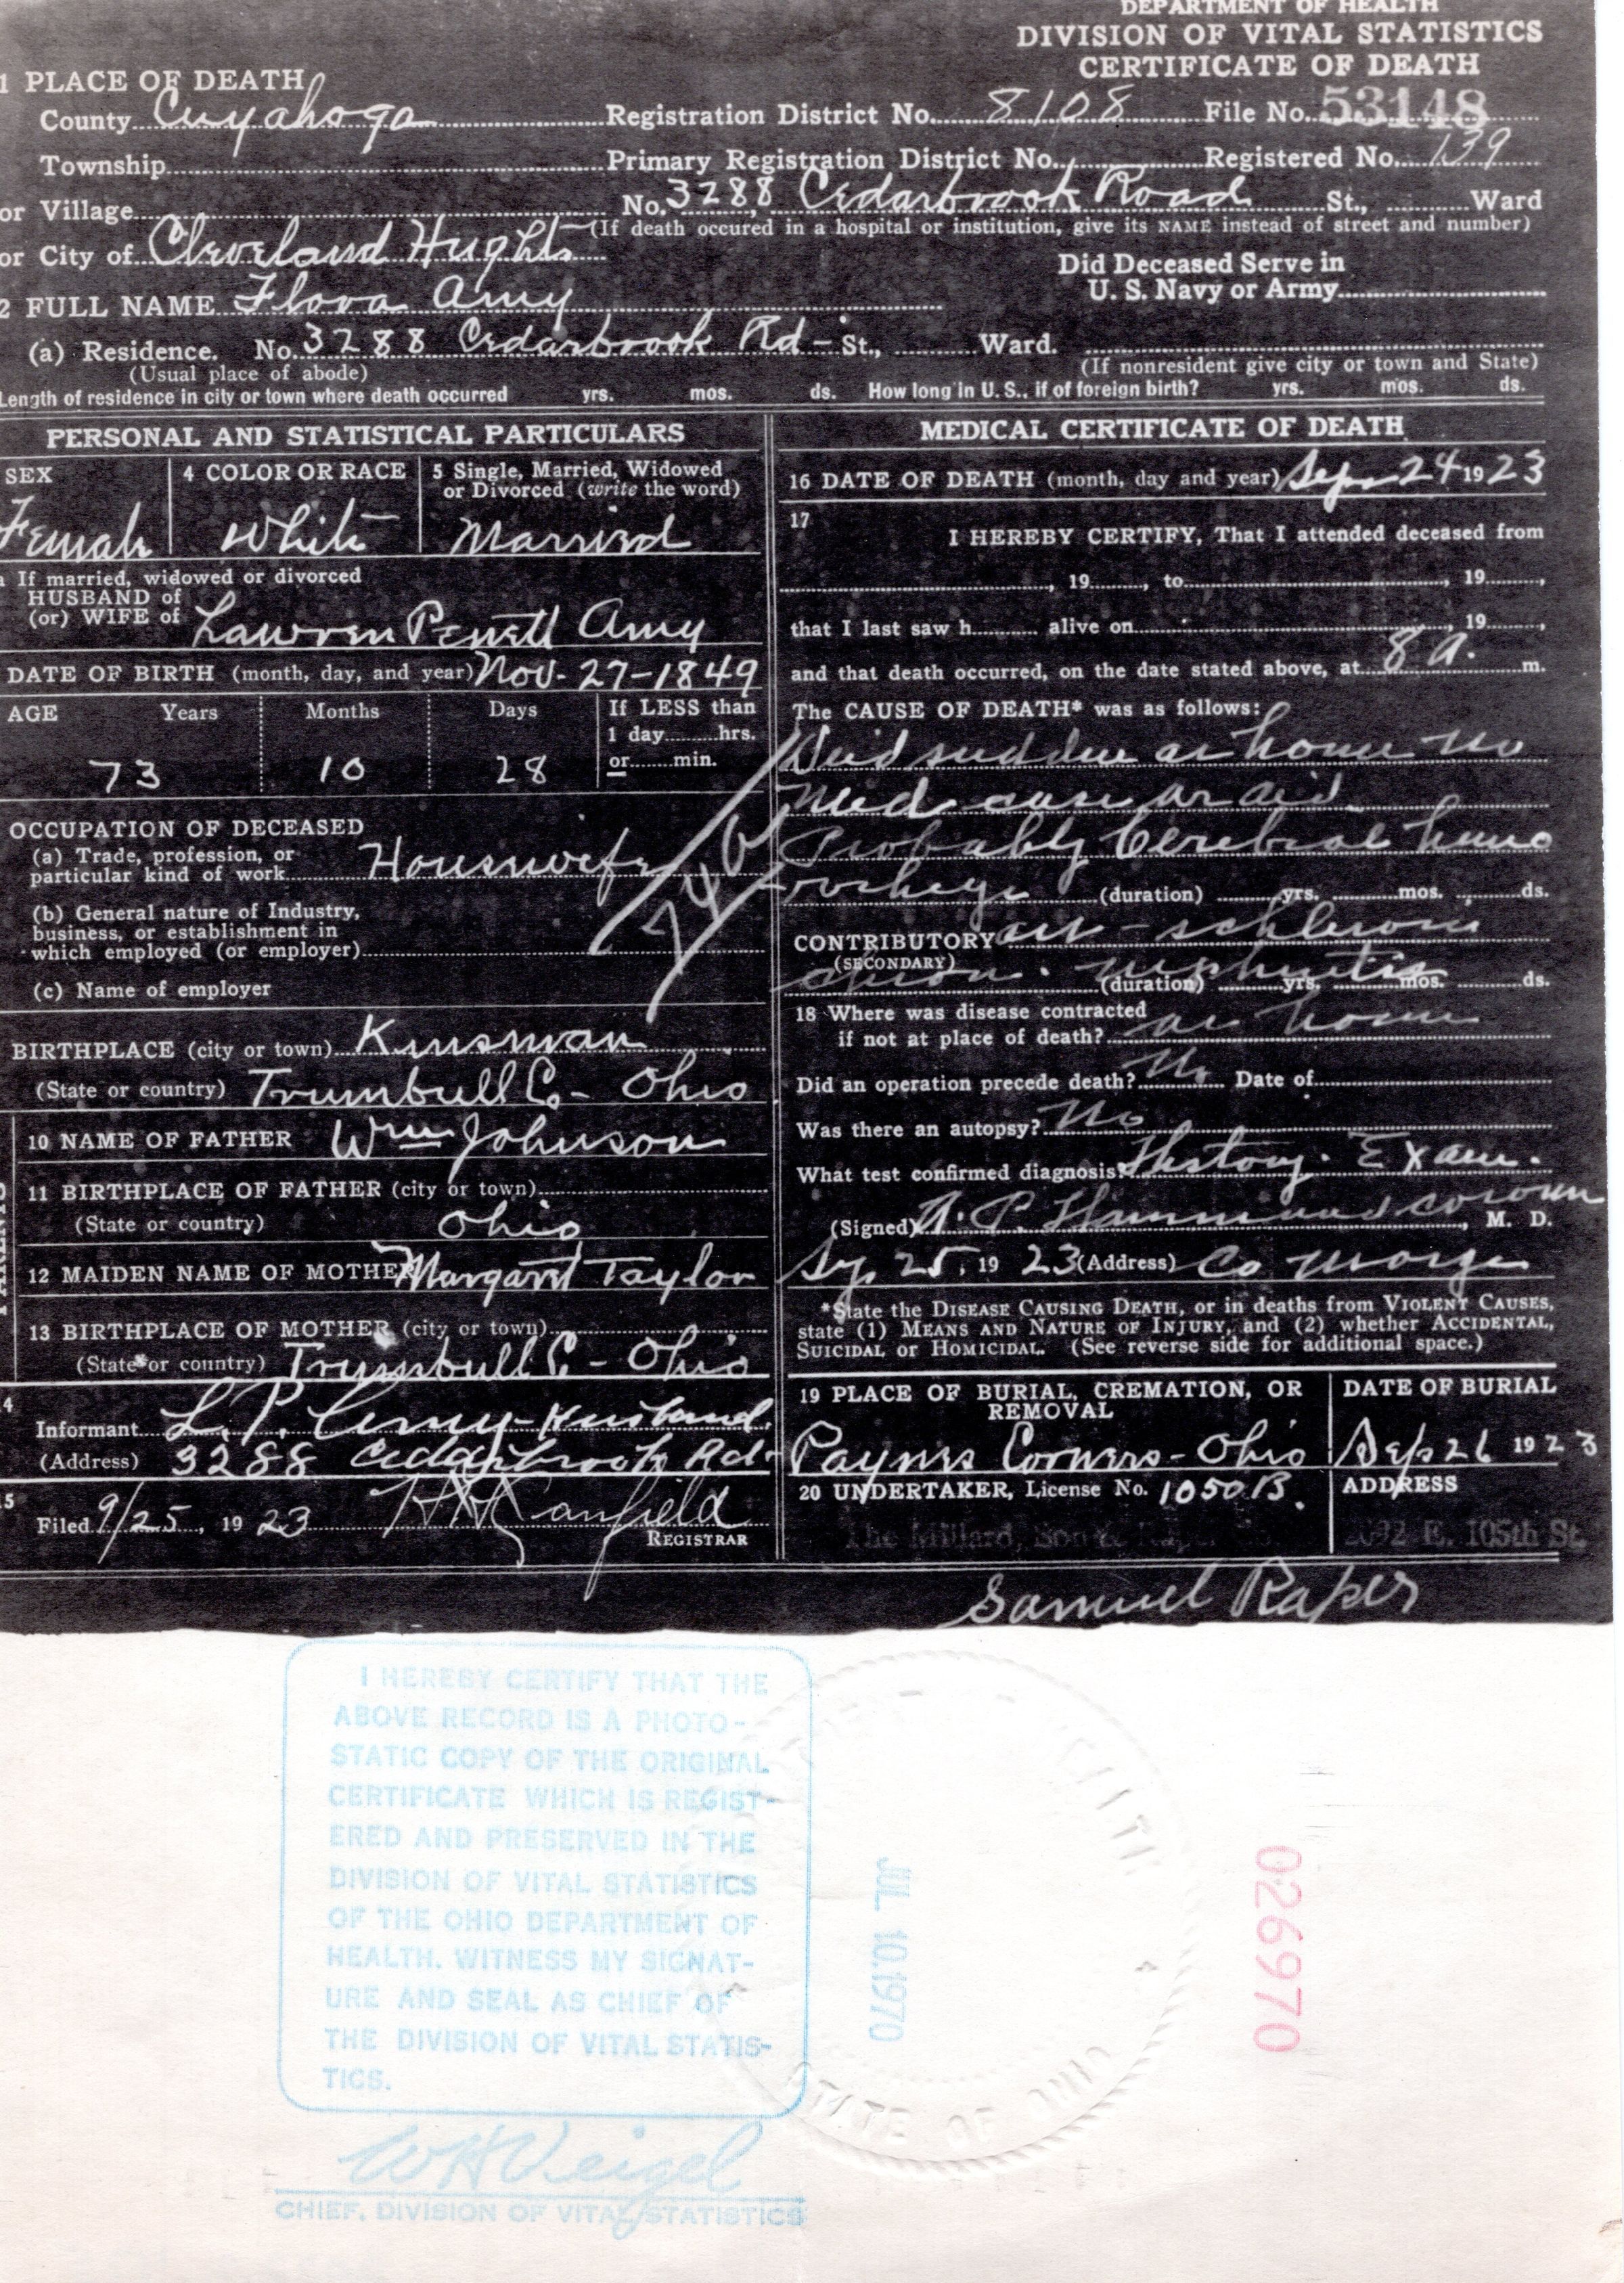 DEPARTMENT OF HEALTH
DIVISION OF VITAL STATISTICS
CERTIFICATE OF DEATH
1 PLACE OF DEATH
County Cuyahoga Registration District No. 8108 File No. 53148
Township Primary Registration District No. Registered No. 139
or Village No. 3288 Cedarbrook Road St., Ward
(If death occured in a hospital or institution, give its NAME instead of street and number)
or City of Cleveland Hughts
Did Deceased Serve in
U. S. Navy or Army
2 FULL NAME Flora Amy
(a) Residence. No. 3288 Cedarbrook Rd - St., Ward.
(Usual place of abode) (If nonresident give city or town and State)
Length of residence in city or town where death occurred yrs. mos. ds. How long in U. S., if of foreign birth? yrs. mos. ds.
PERSONAL AND STATISTICAL PARTICULARS
SEX 4 COLOR OR RACE 5 Single, Married, Widowed
or Divorced (write the word)
Female White Married
a If married, widowed or divorced
HUSBAND of
(or) WIFE of Amy
DATE OF BIRTH (month, day, and year) Nov-27-1849
AGE Years Months Days If LESS than
1 day hrs.
or min.
73 10 28
OCCUPATION OF DECEASED
(a) Trade, profession, or
particular kind of work Housewife
(b) General nature of Industry,
business, or establishment in
which employed (or employer)
(c) Name of employer
74
BIRTHPLACE (city or town) Kinsman
(State or country) Trumbull Co- Ohio
10 NAME OF FATHER Wm Johnson
11 BIRTHPLACE OF FATHER (city or town)
(State or country) Ohio
12 MAIDEN NAME OF MOTHER Margaret Taylor
13 BIRTHPLACE OF MOTHER (city or town)
(State or country) Trumbull C. - Ohio
14
Informant L. P. Amy - Husband.
(Address) 3288 Cedarbrook Rd-
15
Filed 9/25, 1923 Canfield
REGISTRAR
MEDICAL CERTIFICATE OF DEATH
16 DATE OF DEATH (month, day and year) Sep 24 1923
17
I HEREBY CERTIFY, That I attended deceased from
, 19 , to , 19 ,
that I last saw h alive on , 19 ,
and that death occurred, on the date stated above, at 8 a. m.
The CAUSE OF DEATH* was as follows:
Died sudden at home no
Med care or aid
Probably Cerebral hemo
rrhage (duration) yrs. mos. ds.
CONTRIBUTORY art - schlerosis
(SECONDARY)
chron. nephritis (duration) yrs. mos. ds.
18 Where was disease contracted
if not at place of death? at home
Did an operation precede death? No Date of
Was there an autopsy? No
What test confirmed diagnosis? History. Exam.
(Signed) A. P. Hammond coroner, M. D.
Sep 25, 1923 (Address) Co morge
*State the DISEASE CAUSING DEATH, or in deaths from VIOLENT CAUSES,
state (1) MEANS AND NATURE OF INJURY, and (2) whether ACCIDENTAL,
SUICIDAL or HOMICIDAL. (See reverse side for additional space.)
19 PLACE OF BURIAL, CREMATION, OR
REMOVAL
DATE OF BURIAL
Paynes Corners - Ohio Sep 26 1923
20 UNDERTAKER, License No. 1050B. ADDRESS
The Millard, Son & Raper 2092 E. 105th St
Samuel Raper
I HEREBY CERTIFY THAT THE
ABOVE RECORD IS A PHOTO-
STATIC COPY OF THE ORIGINAL
CERTIFICATE WHICH IS REGIST-
ERED AND PRESERVED IN THE
DIVISION OF VITAL STATISTICS
OF THE OHIO DEPARTMENT OF
HEALTH. WITNESS MY SIGNAT-
URE AND SEAL AS CHIEF OF
THE DIVISION OF VITAL STATIS-
TICS.
WHVeigel
CHIEF, DIVISION OF VITAL STATISTICS
JUL 10.1970
026970
STATE OF OHIO